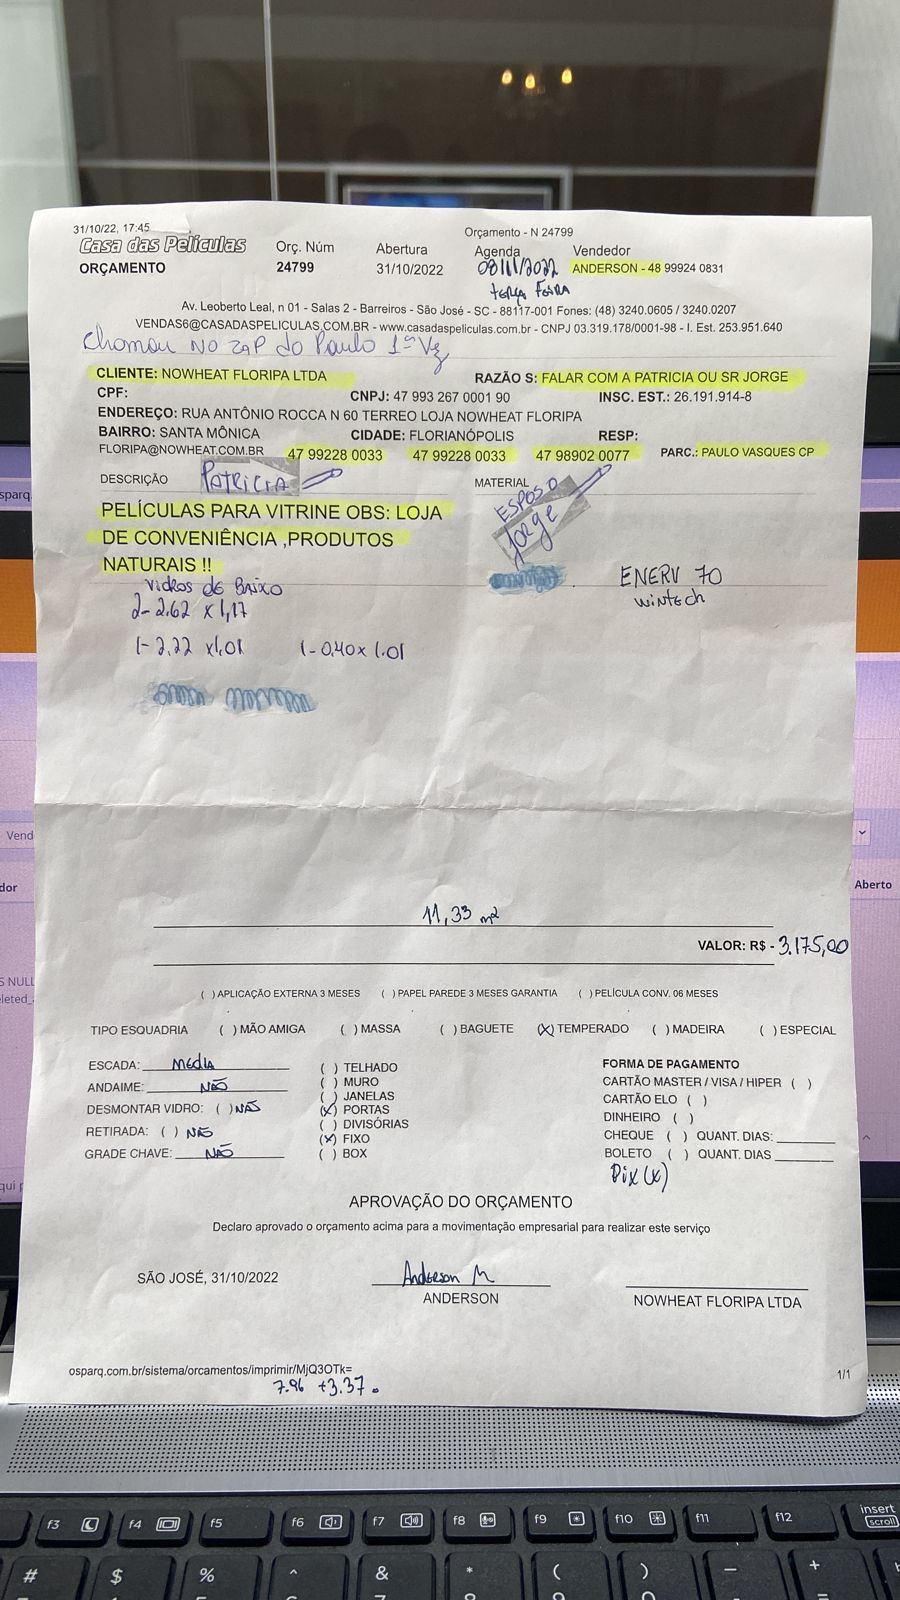 31/10/22, 17:45
Orçamento - N 24799
Casa das Películas
Orç. Núm Abertura Agenda Vendedor
ORÇAMENTO 24799 31/10/2022 08/11/2022 ANDERSON - 48 99924 0831
terça Feira
Av. Leoberto Leal, n 01 - Salas 2 - Barreiros - São José - SC - 88117-001 Fones: (48) 3240.0605 / 3240.0207
VENDAS6@CASADASPELICULAS.COM.BR - www.casadaspeliculas.com.br - CNPJ 03.319.178/0001-98 - I. Est. 253.951.640
Chamou NO ZAP do Paulo 1ª Vez
CLIENTE: NOWHEAT FLORIPA LTDA RAZÃO S: FALAR COM A PATRICIA OU SR JORGE
CPF: CNPJ: 47 993 267 0001 90 INSC. EST.: 26.191.914-8
ENDEREÇO: RUA ANTÔNIO ROCCA N 60 TERREO LOJA NOWHEAT FLORIPA
BAIRRO: SANTA MÔNICA CIDADE: FLORIANÓPOLIS RESP:
FLORIPA@NOWHEAT.COM.BR 47 99228 0033 47 99228 0033 47 98902 0077 PARC.: PAULO VASQUES CP
DESCRIÇÃO PATRICIA MATERIAL
ESPOSO
Jorge
PELÍCULAS PARA VITRINE OBS: LOJA
DE CONVENIÊNCIA ,PRODUTOS
NATURAIS !!
ENERV 70
wintech
Vidros de Baixo
2- 2.62 x 1,17
1- 2,22 x1,01 1- 0,40 x 1.01
11,33 m²
VALOR: R$ - 3.175,00
( ) APLICAÇÃO EXTERNA 3 MESES ( ) PAPEL PAREDE 3 MESES GARANTIA ( ) PELÍCULA CONV. 06 MESES
TIPO ESQUADRIA ( ) MÃO AMIGA ( ) MASSA ( ) BAGUETE (X) TEMPERADO ( ) MADEIRA ( ) ESPECIAL
ESCADA: Media ( ) TELHADO FORMA DE PAGAMENTO
ANDAIME: NÃO ( ) MURO CARTÃO MASTER / VISA / HIPER ( )
( ) JANELAS CARTÃO ELO ( )
DESMONTAR VIDRO: ( ) NÃO (X) PORTAS DINHEIRO ( )
RETIRADA: ( ) NÃO ( ) DIVISÓRIAS CHEQUE ( ) QUANT. DIAS:
(X) FIXO
GRADE CHAVE: NÃO ( ) BOX BOLETO ( ) QUANT. DIAS
Pix (x)
APROVAÇÃO DO ORÇAMENTO
Declaro aprovado o orçamento acima para a movimentação empresarial para realizar este serviço
SÃO JOSÉ, 31/10/2022 Anderson M
ANDERSON NOWHEAT FLORIPA LTDA
osparq.com.br/sistema/orcamentos/imprimir/MjQ3OTk=
1/1
7.96 +3.37.
sparq.
Vend
dor
Aberto
S NULL
eleted_
qui p
f3 f4 f5 f6 f7 f8 f9 f10 f11 f12 insert
scroll
# $ % ^ & * ( ) _ +